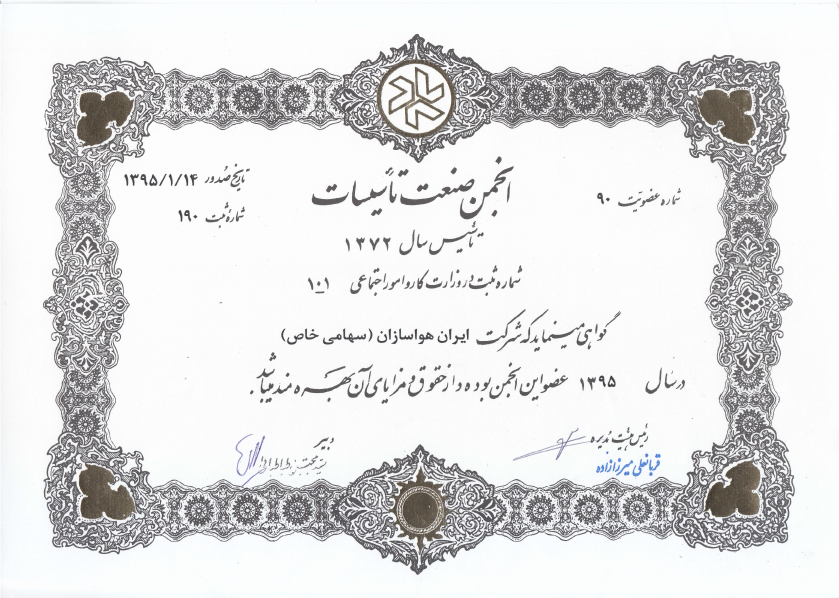 شماره عضویت ۹۰
تاریخ صدور ۱۳۹۵/۱/۱۴
شماره ثبت ۱۹۰
انجمن صنعت تأسیسات
تأسیس سال ۱۳۷۲
شماره ثبت در وزارت کار و امور اجتماعی ۱۰۱
گواهی مینماید که شرکت ایران هواسازان (سهامی خاص)
در سال ۱۳۹۵ عضو این انجمن بوده و از حقوق و مزایای آن بهره مند میباشد.
رئیس هیئت مدیره
قربانعلی میرزازاده
دبیر
سید مجتبی